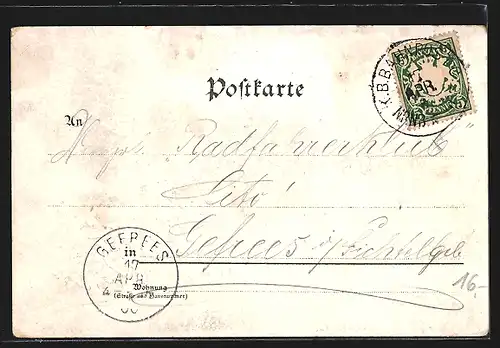 Postkarte
K.B.BAHNPOST
APR.
An
"Radfahrerklub"
Gefrees i/Fichtelgeb
GEFREES
17
APR
in
Wohnung
(Straße und Hausnummer)
16.-